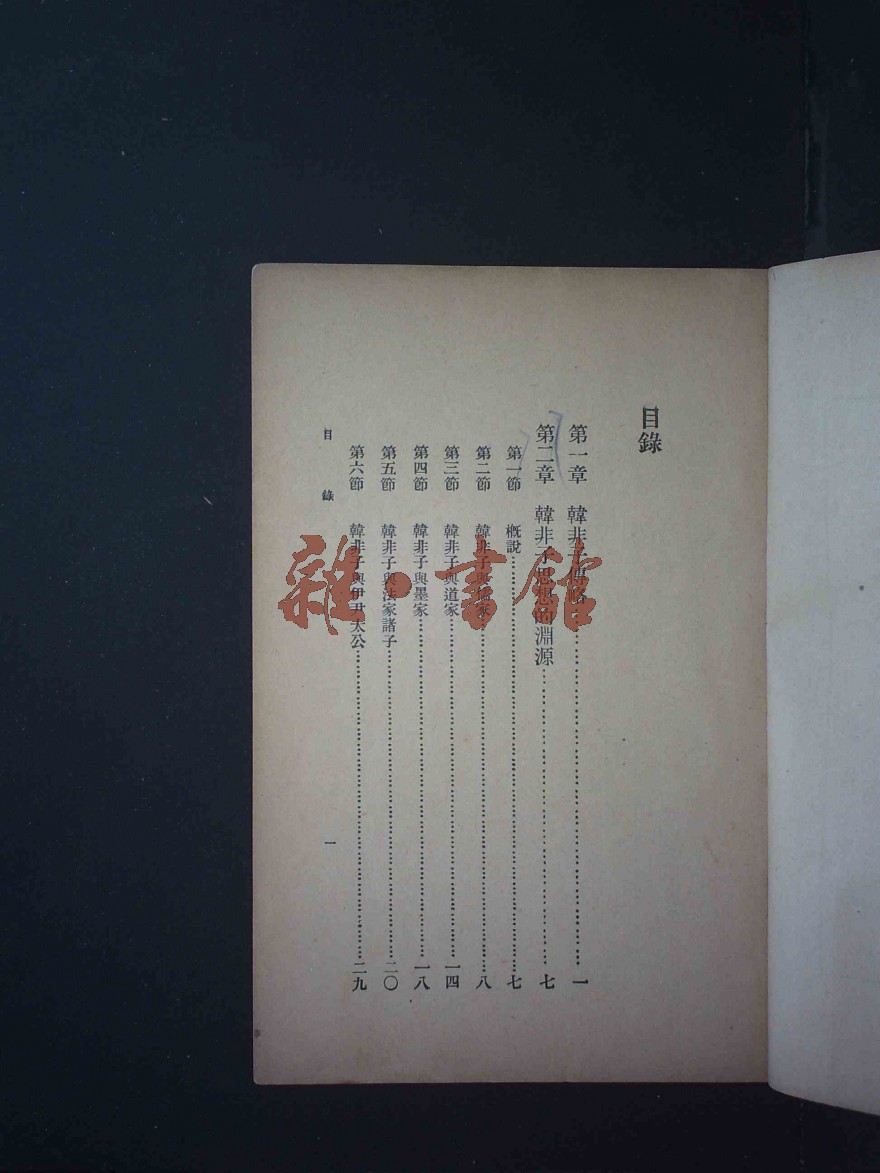 目錄
第一章 韓非子傳略……一
第二章 韓非子思想的淵源……七
第一節 概說……七
第二節 韓非子與儒家……八
第三節 韓非子與道家……一四
第四節 韓非子與墨家……一八
第五節 韓非子與法家諸子……二〇
第六節 韓非子與伊尹太公……二九
目錄 一
雜·書館